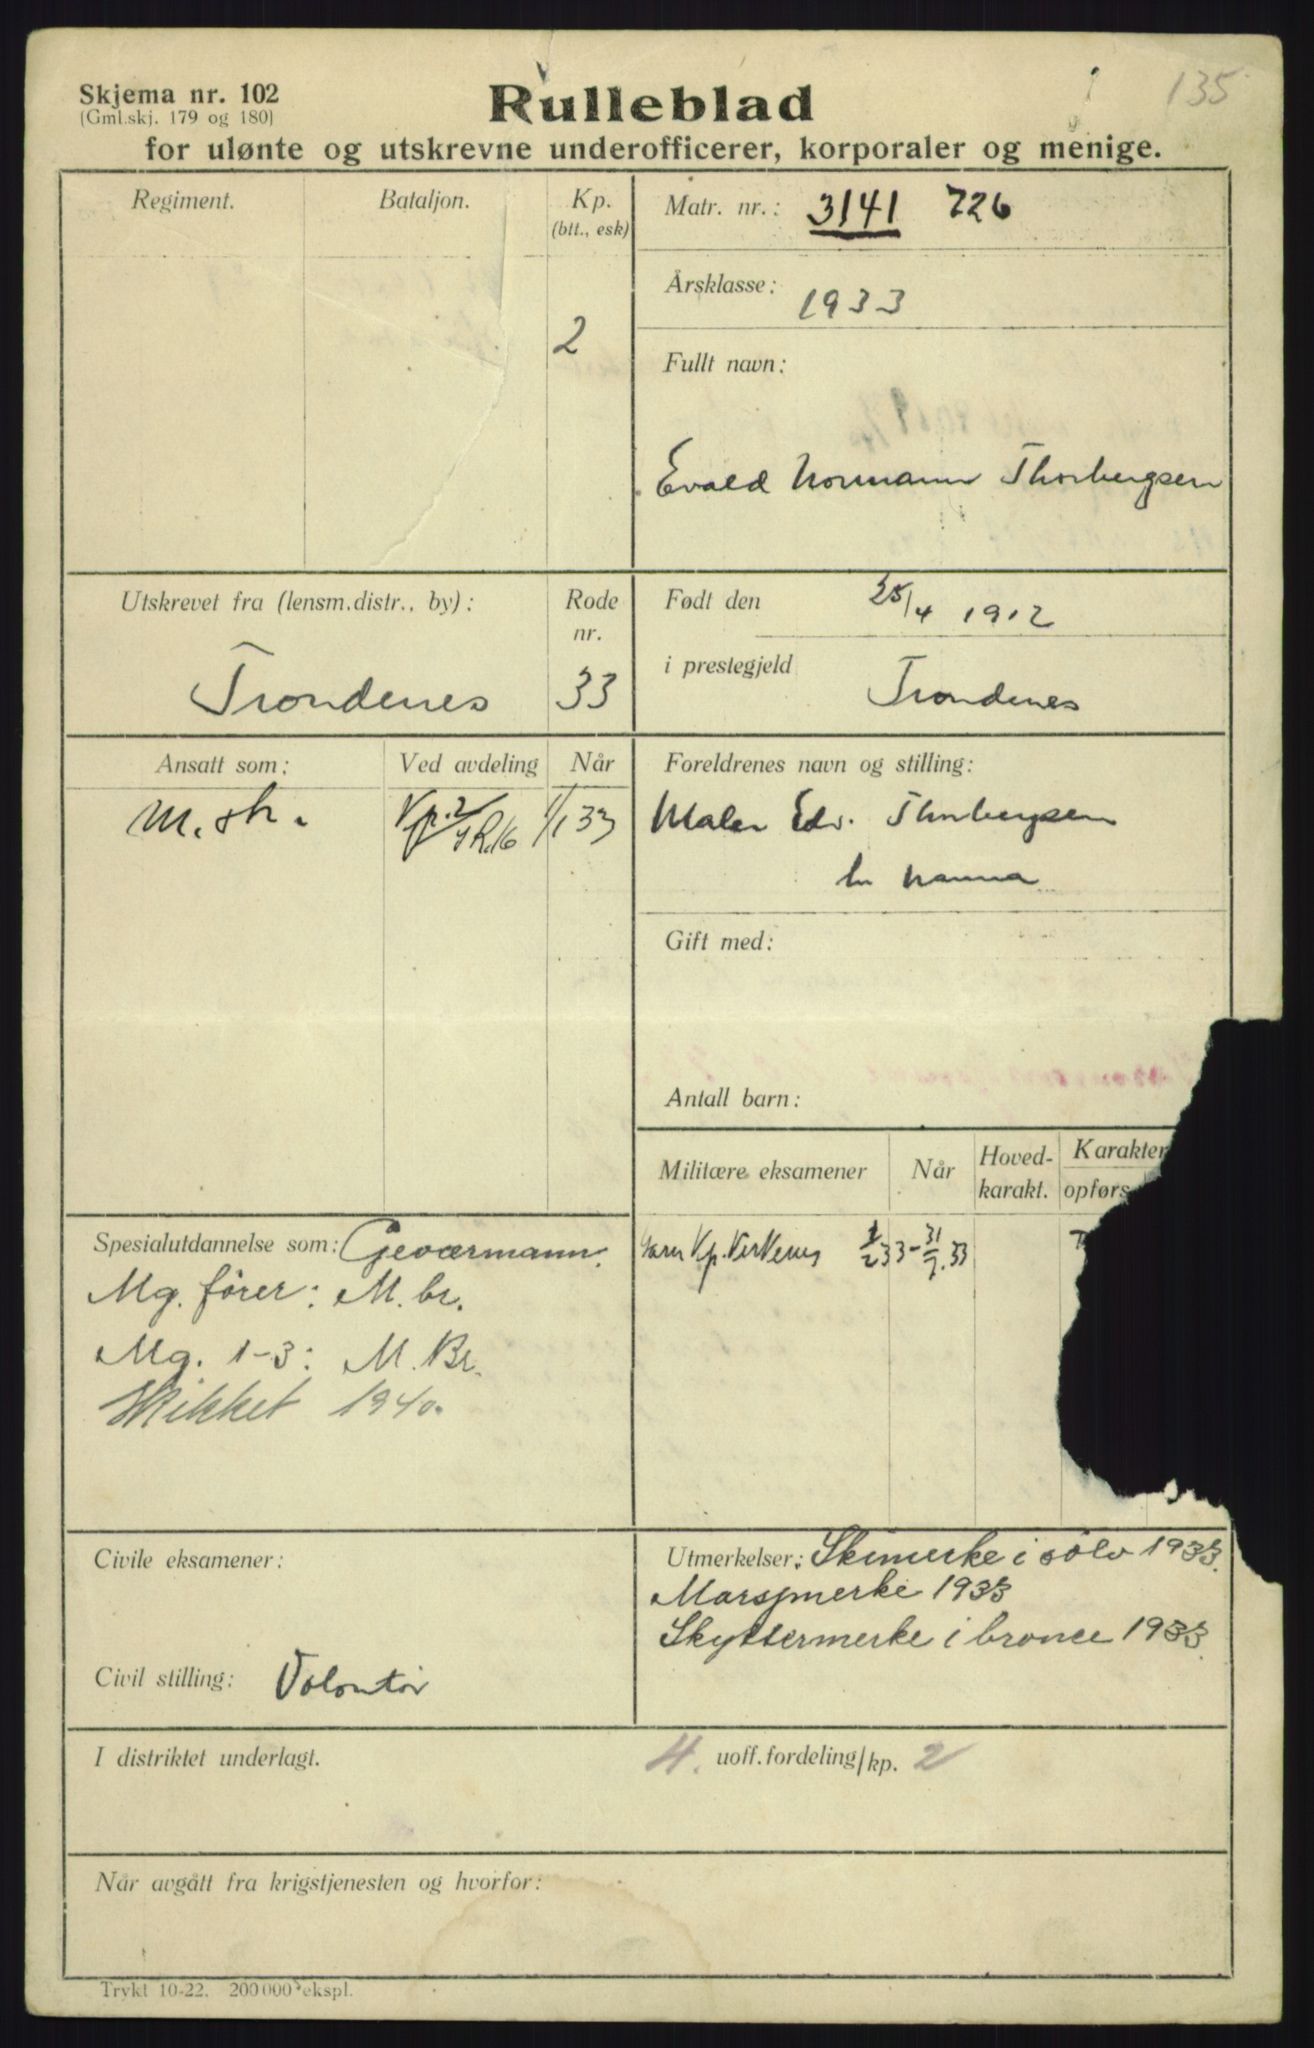 135
Skjema nr. 102
(Gml.skj. 179 og 180)
Rulleblad
for ulønte og utskrevne underofficerer, korporaler og menige.
Regiment.
Bataljon.
Kp.
(btt., esk)
2
Matr. nr.: 3141 726
Årsklasse: 1933
Fullt navn:
Evald Normann Thorbergsen
Utskrevet fra (lensm.distr., by):
Trondenes
Rode
nr.
33
Født den 25/4 1912
i prestegjeld Trondenes
Ansatt som:
Ved avdeling
Når
M. sk.
Vp. 2/IR.16
1/1 33
Foreldrenes navn og stilling:
Maler Edv. Thorbergsen
Nanna
Gift med:
Antall barn:
Militære eksamener
Når
Hoved-
karakt.
Karakter
opførs
Garn Vp. Kirkenes
1/2 33 - 31/7. 33
Spesialutdannelse som: Geværmann.
Mg. fører: M. br.
Mg. 1-3: M. Br.
Skikket 1940.
Civile eksamener:
Civil stilling: Volontør
Utmerkelser: Skimerke i sølv 1933.
Marsjmerke 1933
Skyttermerke i bronce 1933.
I distriktet underlagt.
4. uoff.fordeling/kp. 2
Når avgått fra krigstjenesten og hvorfor:
Trykt 10-22. 200 000 ekspl.